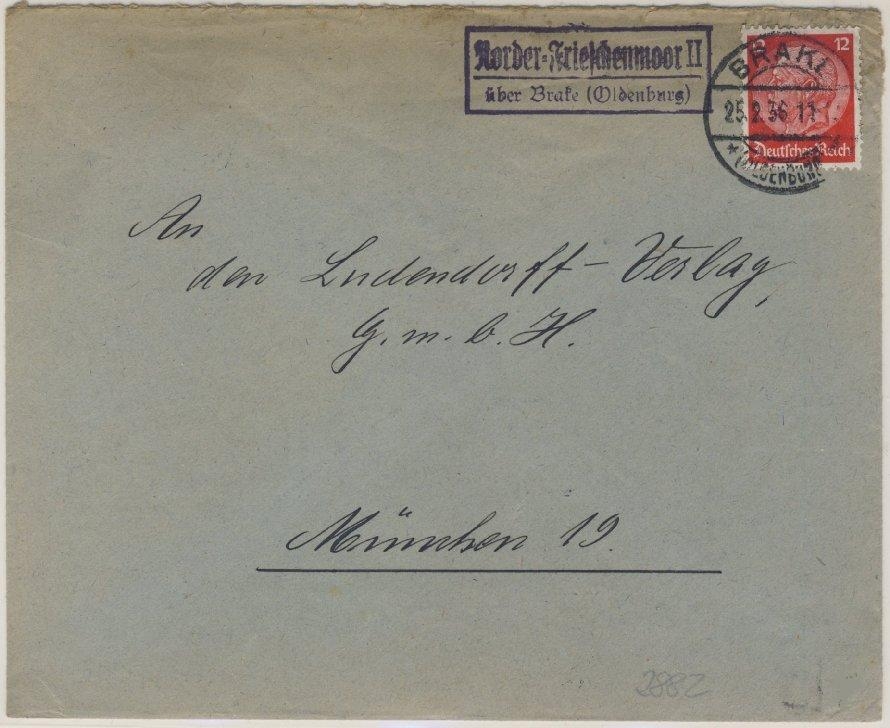 Norder-Frieschenmoor II
über Brake (Oldenburg)
12
BRAKE
25.2.36 11
(OLDENBURG)
Deutsches Reich
An
den Ludendorff-Verlag,
G.m.b.H.
München 19.
2882